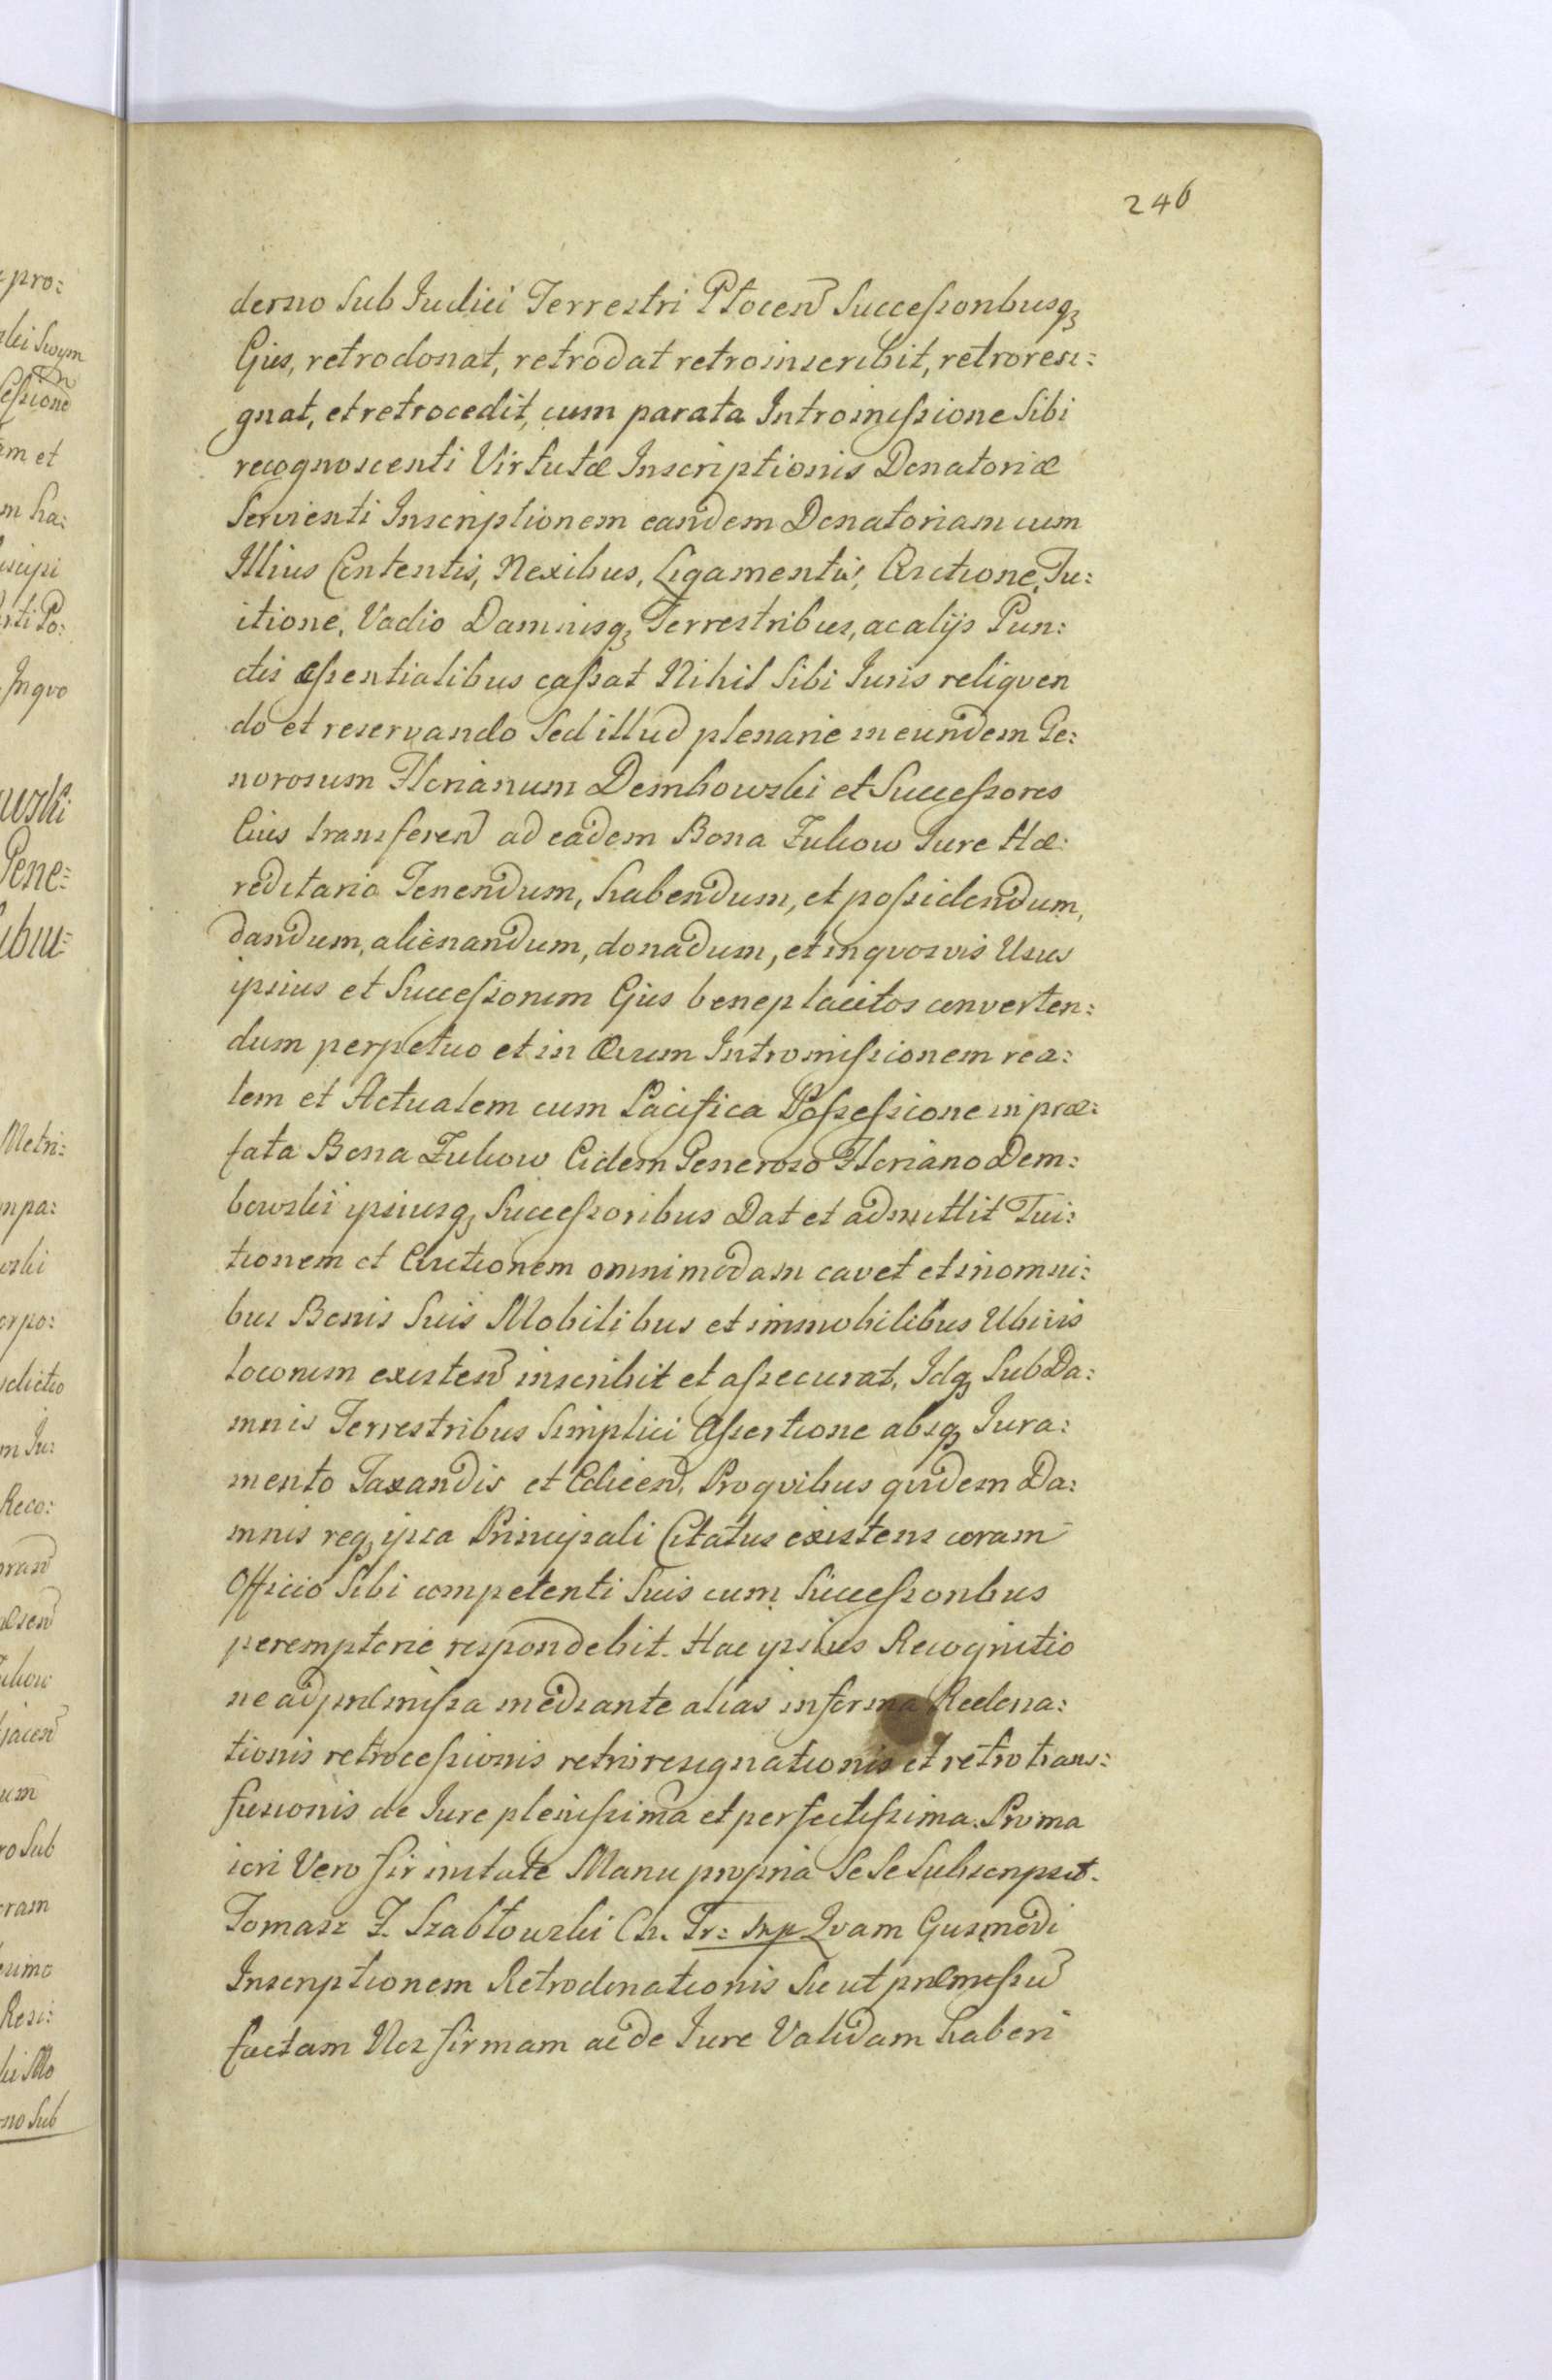 246
derno Sub Iudici Terrestri Płocen Successoribusq3
Ejus, retrodonat, retrodat retroinscribit, retroresi:
gnat, et retrocedit, cum parata Intromissione Sibi
recognoscenti Virtutæ Inscriptionis Donatoriæ
Servienti Inscriptionem eandem Donatoriam cum
Illius Contentis, Nexibus, Ligamentis, Evictione, Tu:
itione, Vadio Damnisq3 Terrestribus, ac alijs Pun:
ctis essentialibus cassat Nihil Sibi Iuris reliqven
do et reservando Sed illud plenarie in eundem Ge:
norosum Florianum Dembowski et Successores
Eius transferen ad eadem Bona Żukow Iure Hæ:
reditario Tenendum, habendum, et possidendum,
dandum, alienandum, donadum, et in qvosvis Usus
ipsius et Successorum Ejus beneplacitos converten:
dum perpetuo et in Ævum Intromissionem rea:
lem et Actualem cum Pacifica Possessione in præ:
fata Bona Żukow Eidem Generoso Floriano Dem:
bowski ipsiusq3 Successoribus Dat et admittit Tui:
tionem et Evictionem omnimodam cavet et in omni:
bus Bonis Suis Mobilibus et immobilibus Ubivis
locorum existen inscribit et assecurat, Idq3 Sub Da:
mnis Terrestribus Simplici Assertione absq3 Iura:
mento Taxandis et Edicen, Pro qvibus qvidem Da:
mnis req3 ipsa Principali Citatus existens coram
Officio Sibi competenti Suis cum Successoribus
peremptorie respondebit. Hac ipsius Recognitio
ne ad præmissa mediante alias in forma Redona:
tionis retrocessionis retroresignationis et retrotrans:
fusionis de Iure plenissima et perfectissima. Pro ma
iori Vero firmitate Manu propria Se Se Subscripsit.
Tomasz Z. Szabłowski Ch. Tr: mp Qvam Ejusmodi
Inscriptionem Retrodonationis Sic ut præmissu
factam Nos firmam ac de Iure Validam haberi